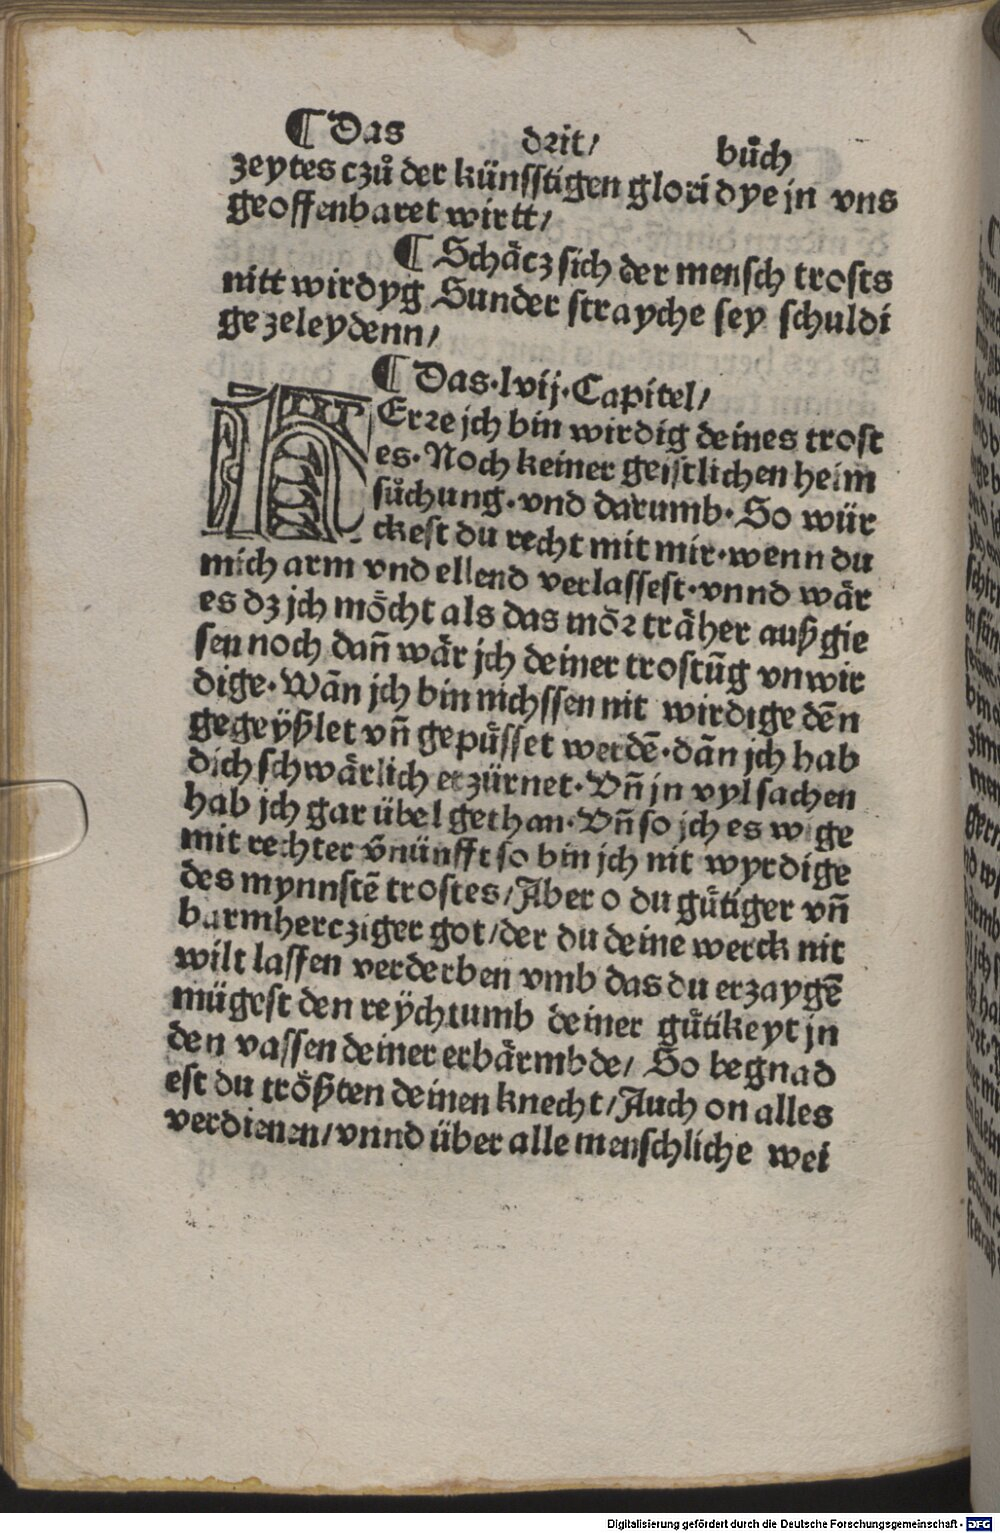 ¶ Das drit/ bůch
zeytes czů der künfftigen glori dye jn vns
geoffenbaret wirtt/
¶ Schäcz sich der mensch trosts
nitt wirdyg Sunder strayche sey schuldi
ge zeleydenn/
¶ Das·lvij·Capitel/
HErꝛe jch bin wirdig deines trost
es·Noch keiner geistlichen heim
sůchung·vnd darumb·So wür
ckest du recht mit mir·wenn du
mich arm vnd ellend verlassest·vnnd wår
es dz jch möcht als das möꝛ träher auß gie
sen noch dañ wär jch deiner trostũg vnwir
dige·Wãn jch bin nichssen nit wirdige dẽn
gegeÿßlet vñ gepüsset werdẽ·dãn jch hab
dich schwärlich erzürnet·Vñ jn vyl sachen
hab jch gar übel gethan·Vñ so jch es wige
mit rechter v̄nünfft so bin jch nit wyrdige
des mynnstẽ trostes/Aber o du gütiger vñ
barmhercziger got/der du deine werck nit
wilt lassen verderben vmb das du erzaygẽ
mügest den reÿchtumb deiner gütikeyt jn
den vassen deiner erbärmbde/ So begnad
est du trößten deinen knecht/Auch on alles
verdienen/vnnd über alle menschliche wei
Digitalisierung gefördert durch die Deutsche Forschungsgemeinschaft - DFG